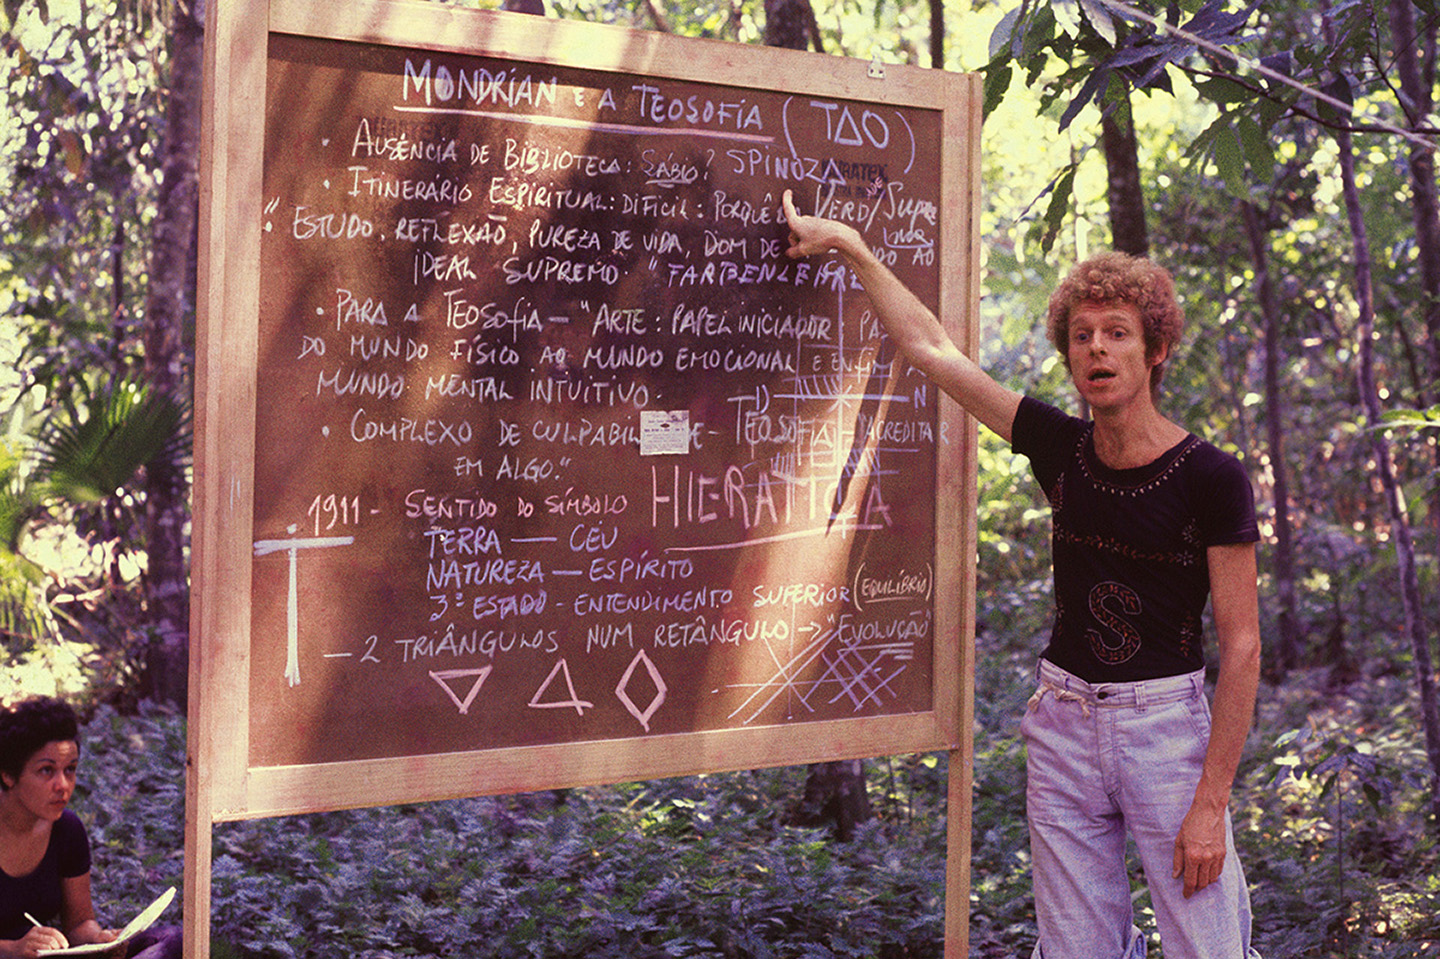 MONDRIAN E A TEOSOFIA (TAO)
• AUSÊNCIA DE BIBLIOTECA: SÁBIO? SPINOZA
• ITINERÁRIO ESPIRITUAL: DIFÍCIL: PORQUÊ VERD/
" ESTUDO, REFLEXÃO, PUREZA DE VIDA, DOM DE AO
IDEAL SUPREMO. "
• PARA A TEOSOFIA — "ARTE: PAPEL INICIADOR:
DO MUNDO FÍSICO AO MUNDO EMOCIONAL E ENFIM A
MUNDO MENTAL INTUITIVO.
• COMPLEXO DE TEOSOFIA - "ACREDITAR
EM ALGO."
1911 - SENTIDO DO SÍMBOLO
TERRA — CÉU
NATUREZA — ESPÍRITO
3º ESTADO - ENTENDIMENTO SUPERIOR (EQUILÍBRIO)
— 2 TRIÂNGULOS NUM RETÂNGULO → "EVOLUÇÃO"
S